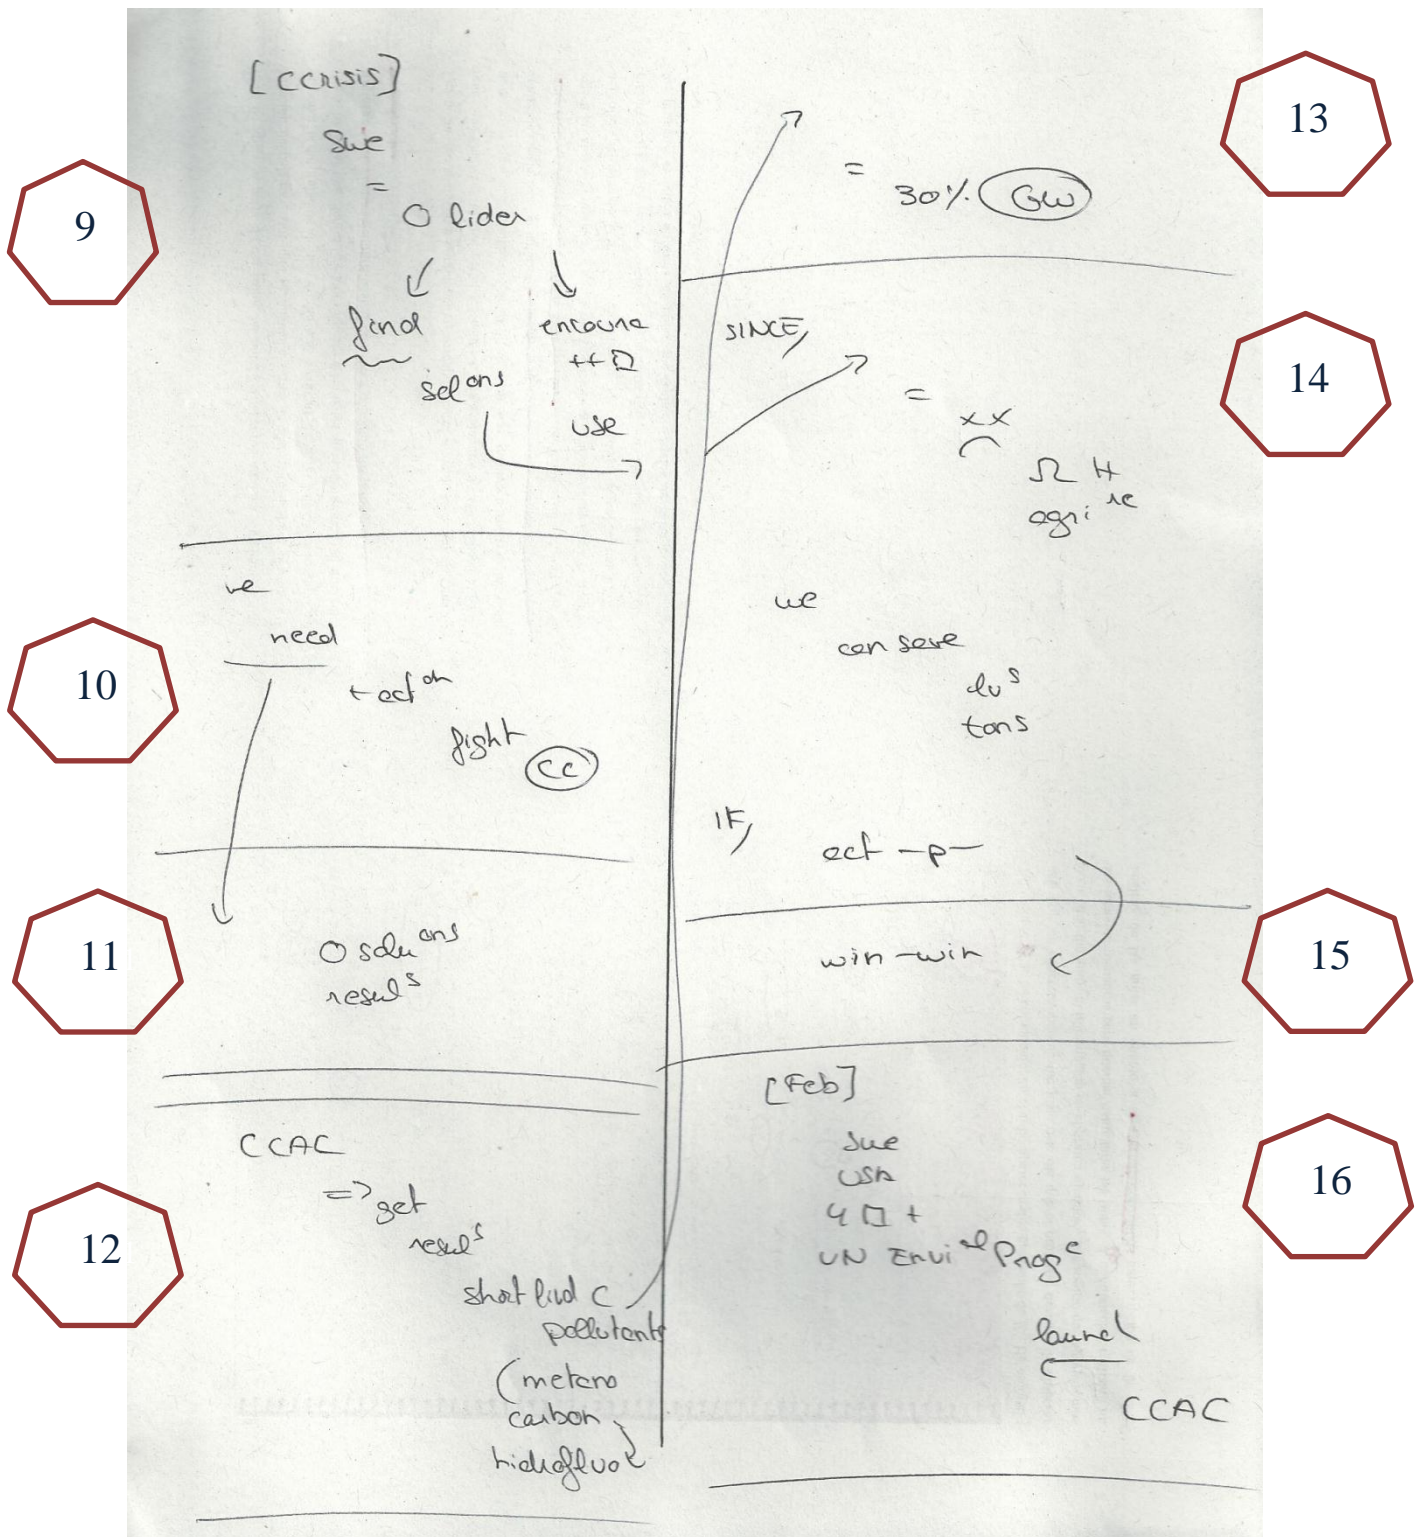 [CCRISIS]
Swe
=
O lider
find
encoura
++□
solons
use
we
need
+ action
fight
CC
O soluons
resuls
CCAC
=> get
resuls
short livd C
pollutants
(metano
carbon
hidrofluo
=
30% GW
SINCE,
=
xx
Ω H
agrire
we
can save
lvs
tons
IF,
act -p-
win-win
[Feb]
Swe
USA
4 □ +
UN Envial Proge
launch
CCAC
9
10
11
12
13
14
15
16